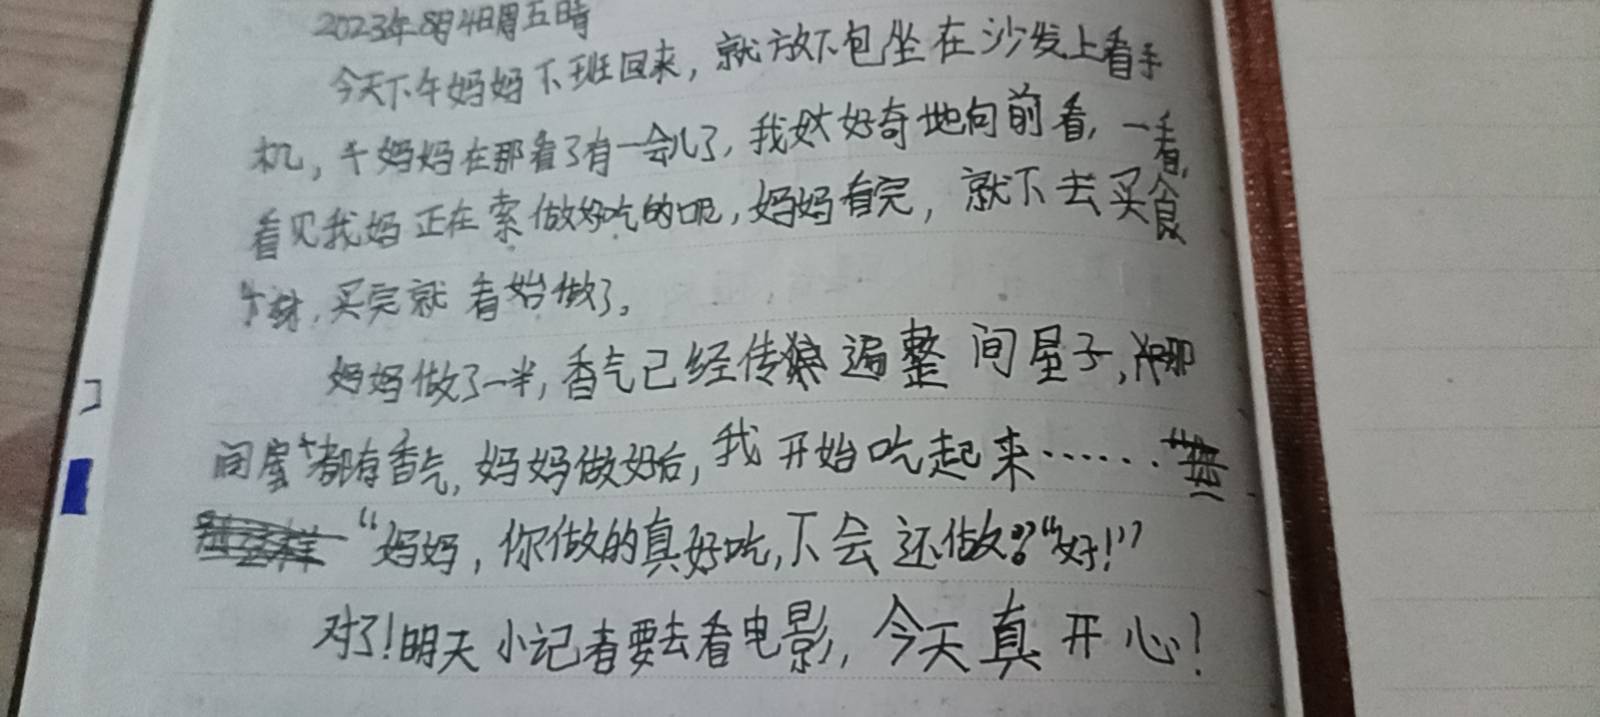 2023年8月4日周五晴
今天下午妈妈下班回来，就放下包坐在沙发上看手
机，千妈妈在那看了有一会儿了，我好奇地向前看，一看，
看见我妈正在索做好吃的呢，妈妈看完，就下去买食
材，买完就看始做了。
妈妈做了一半，香气已经传遍整间屋子，那
间屋都有香气，妈妈做好后，我开始吃起来……
“妈妈，你做的真好吃，下会还做？”“好！”
对了！明天小记者要去看电影，今天真开心！